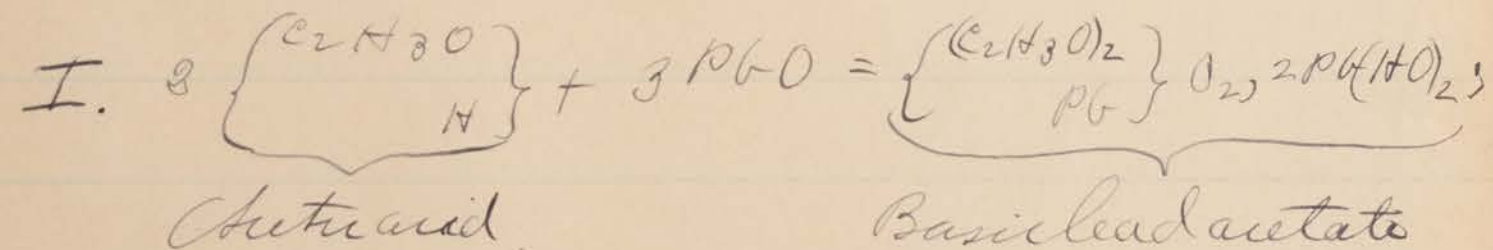 I. 2 { C2H3O H } + 3 PbO = { (C2H3O)2 Pb } O2, 2 Pb(HO)2;
Acetic acid. Basic lead acetate